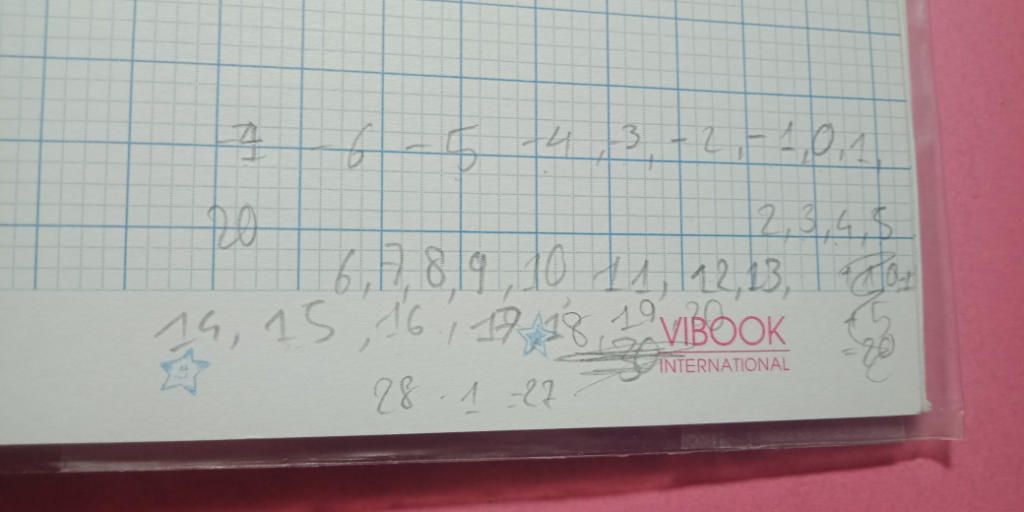 -7 -6 -5 -4, -3, -2, -1, 0, 1,
20 2, 3, 4, 5
6, 7, 8, 9, 10, 11, 12, 13,
14, 15, 16, 17 18, 19 20
+5
VIBOOK
=20
INTERNATIONAL
28 - 1 = 27